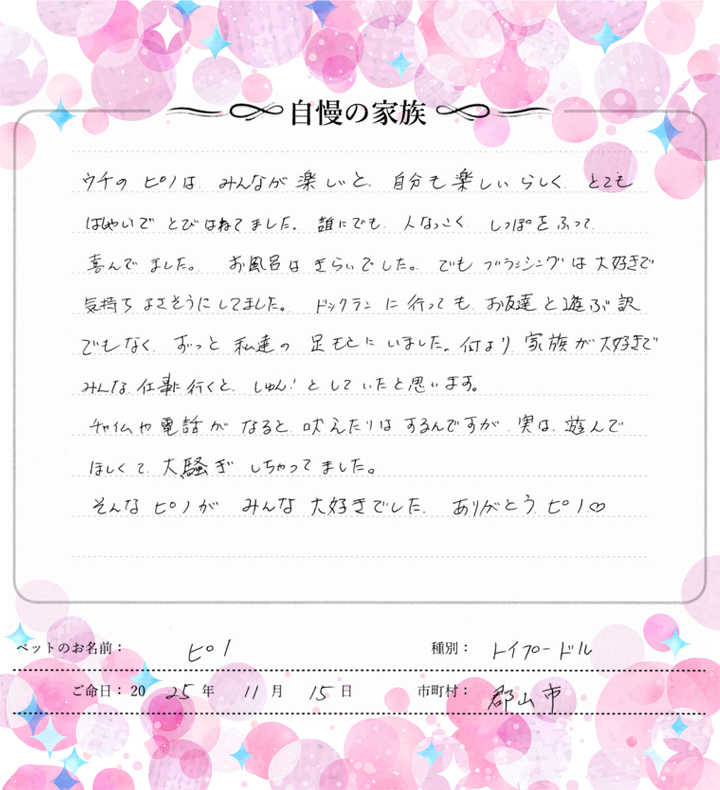 自慢の家族
ウチの ピノは、みんなが 楽しいと、自分も 楽しい らしく、とても
はしゃいで とびはねてました。誰にでも、人なつこく、しっぽをふって、
喜んで ました。 お風呂は きらいでした。でも ブラシングは 大好きで
気持ち よさそうに してました。 ドックランに 行っても お友達と 遊ぶ 訳
でもなく、ずっと 私達の 足もとに いました。何より 家族が 大好きで
みんな、仕事に 行くと、しゅん! と していたと 思います。
チャイムや 電話が なると 吠えたりは するんですが、実は、遊んで
ほしくて、大騒ぎ しちゃってました。
そんな ピノが みんな 大好きでした。 ありがとう、ピノ♡
ペットのお名前： ピノ 種別： トイプードル
ご命日：2025年 11月 15日 市町村： 郡山市